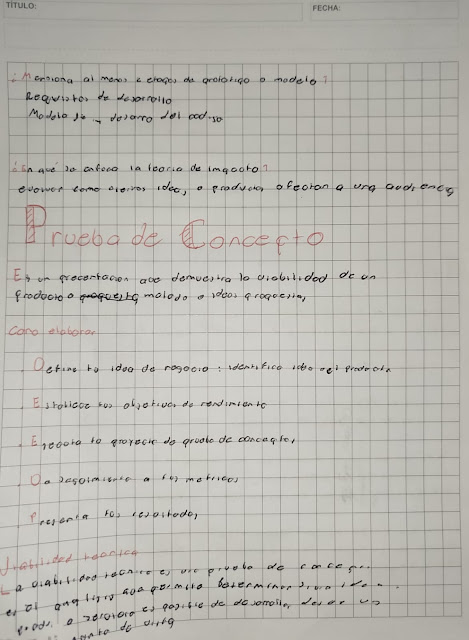 TÍTULO: FECHA:
¿Menciona al menos 2 etapas de prototipo o modelo?
Requisitos de desarrollo
Modelo de desarro del codigo
¿En qué se enfoca la teoria de impacto?
evaluar como ciertas ideas, o productos afectan a una audiencia
Prueba de Concepto
Es un presentacion que demuestra la viabilidad de un
producto o propuesta metodo o ideas propuestas
Como elaborar
. Define tu idea de negocio : identifica idea del producto
. Establece tus objetivos de rendimiento
. Ejecuta tu proyecto de prueba de concepto,
. Da seguimiento a tus metricas
. Presenta tus resultados,
Viabilidad tecnica
La viabilidad tecnica es una prueba de concep
es el analisis que permite determinar si un idea
o servicio es posible de desarrollar desde un
punto de vista